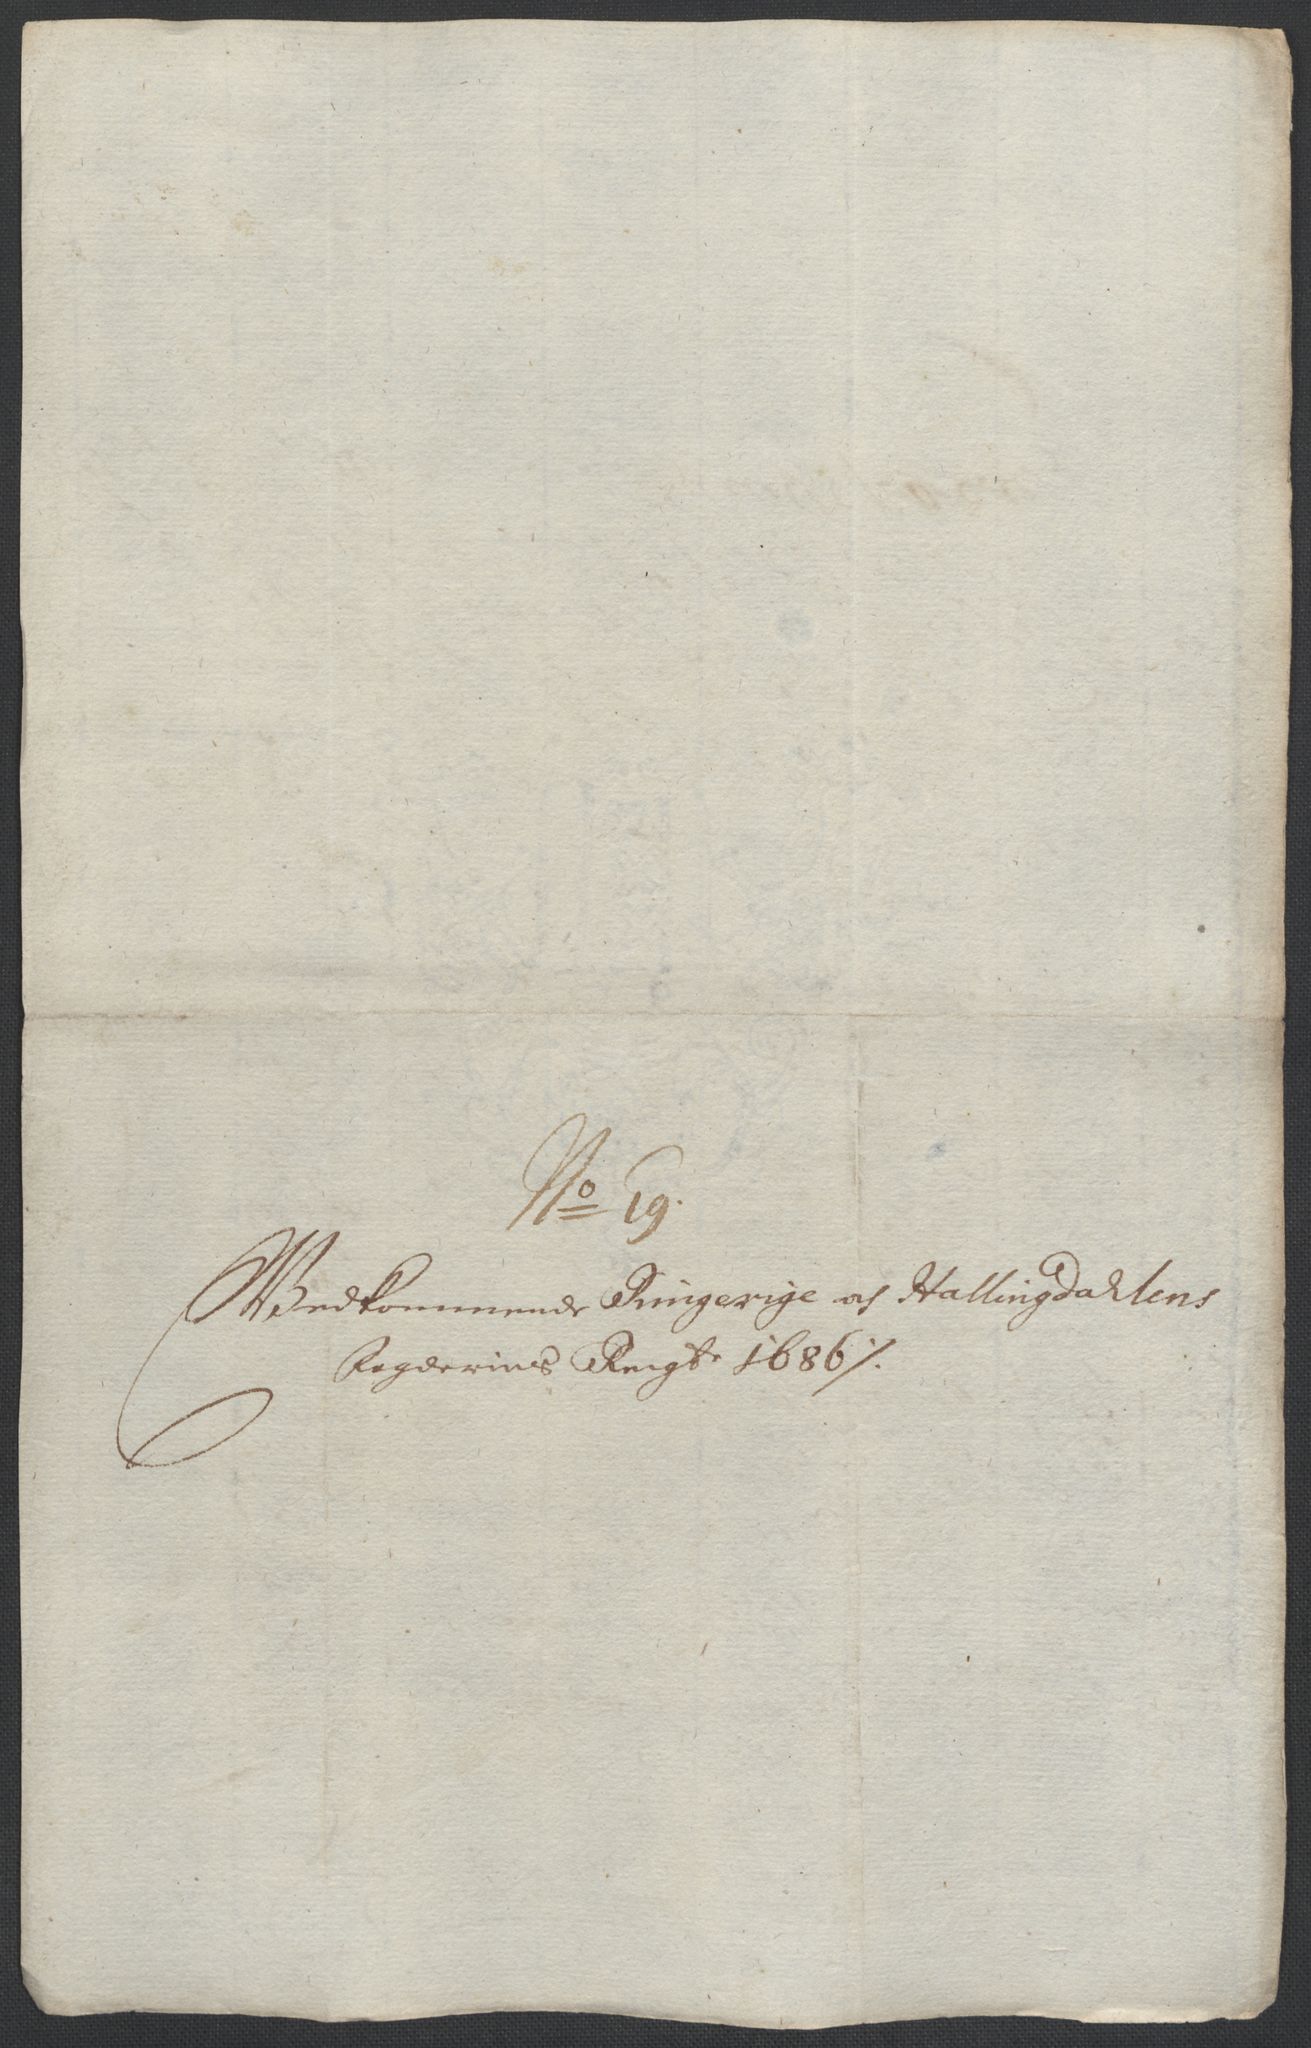 No 19.
Wedkommende Ringerige og Hallingdahlens
Fogderies Rengb 1686 /.